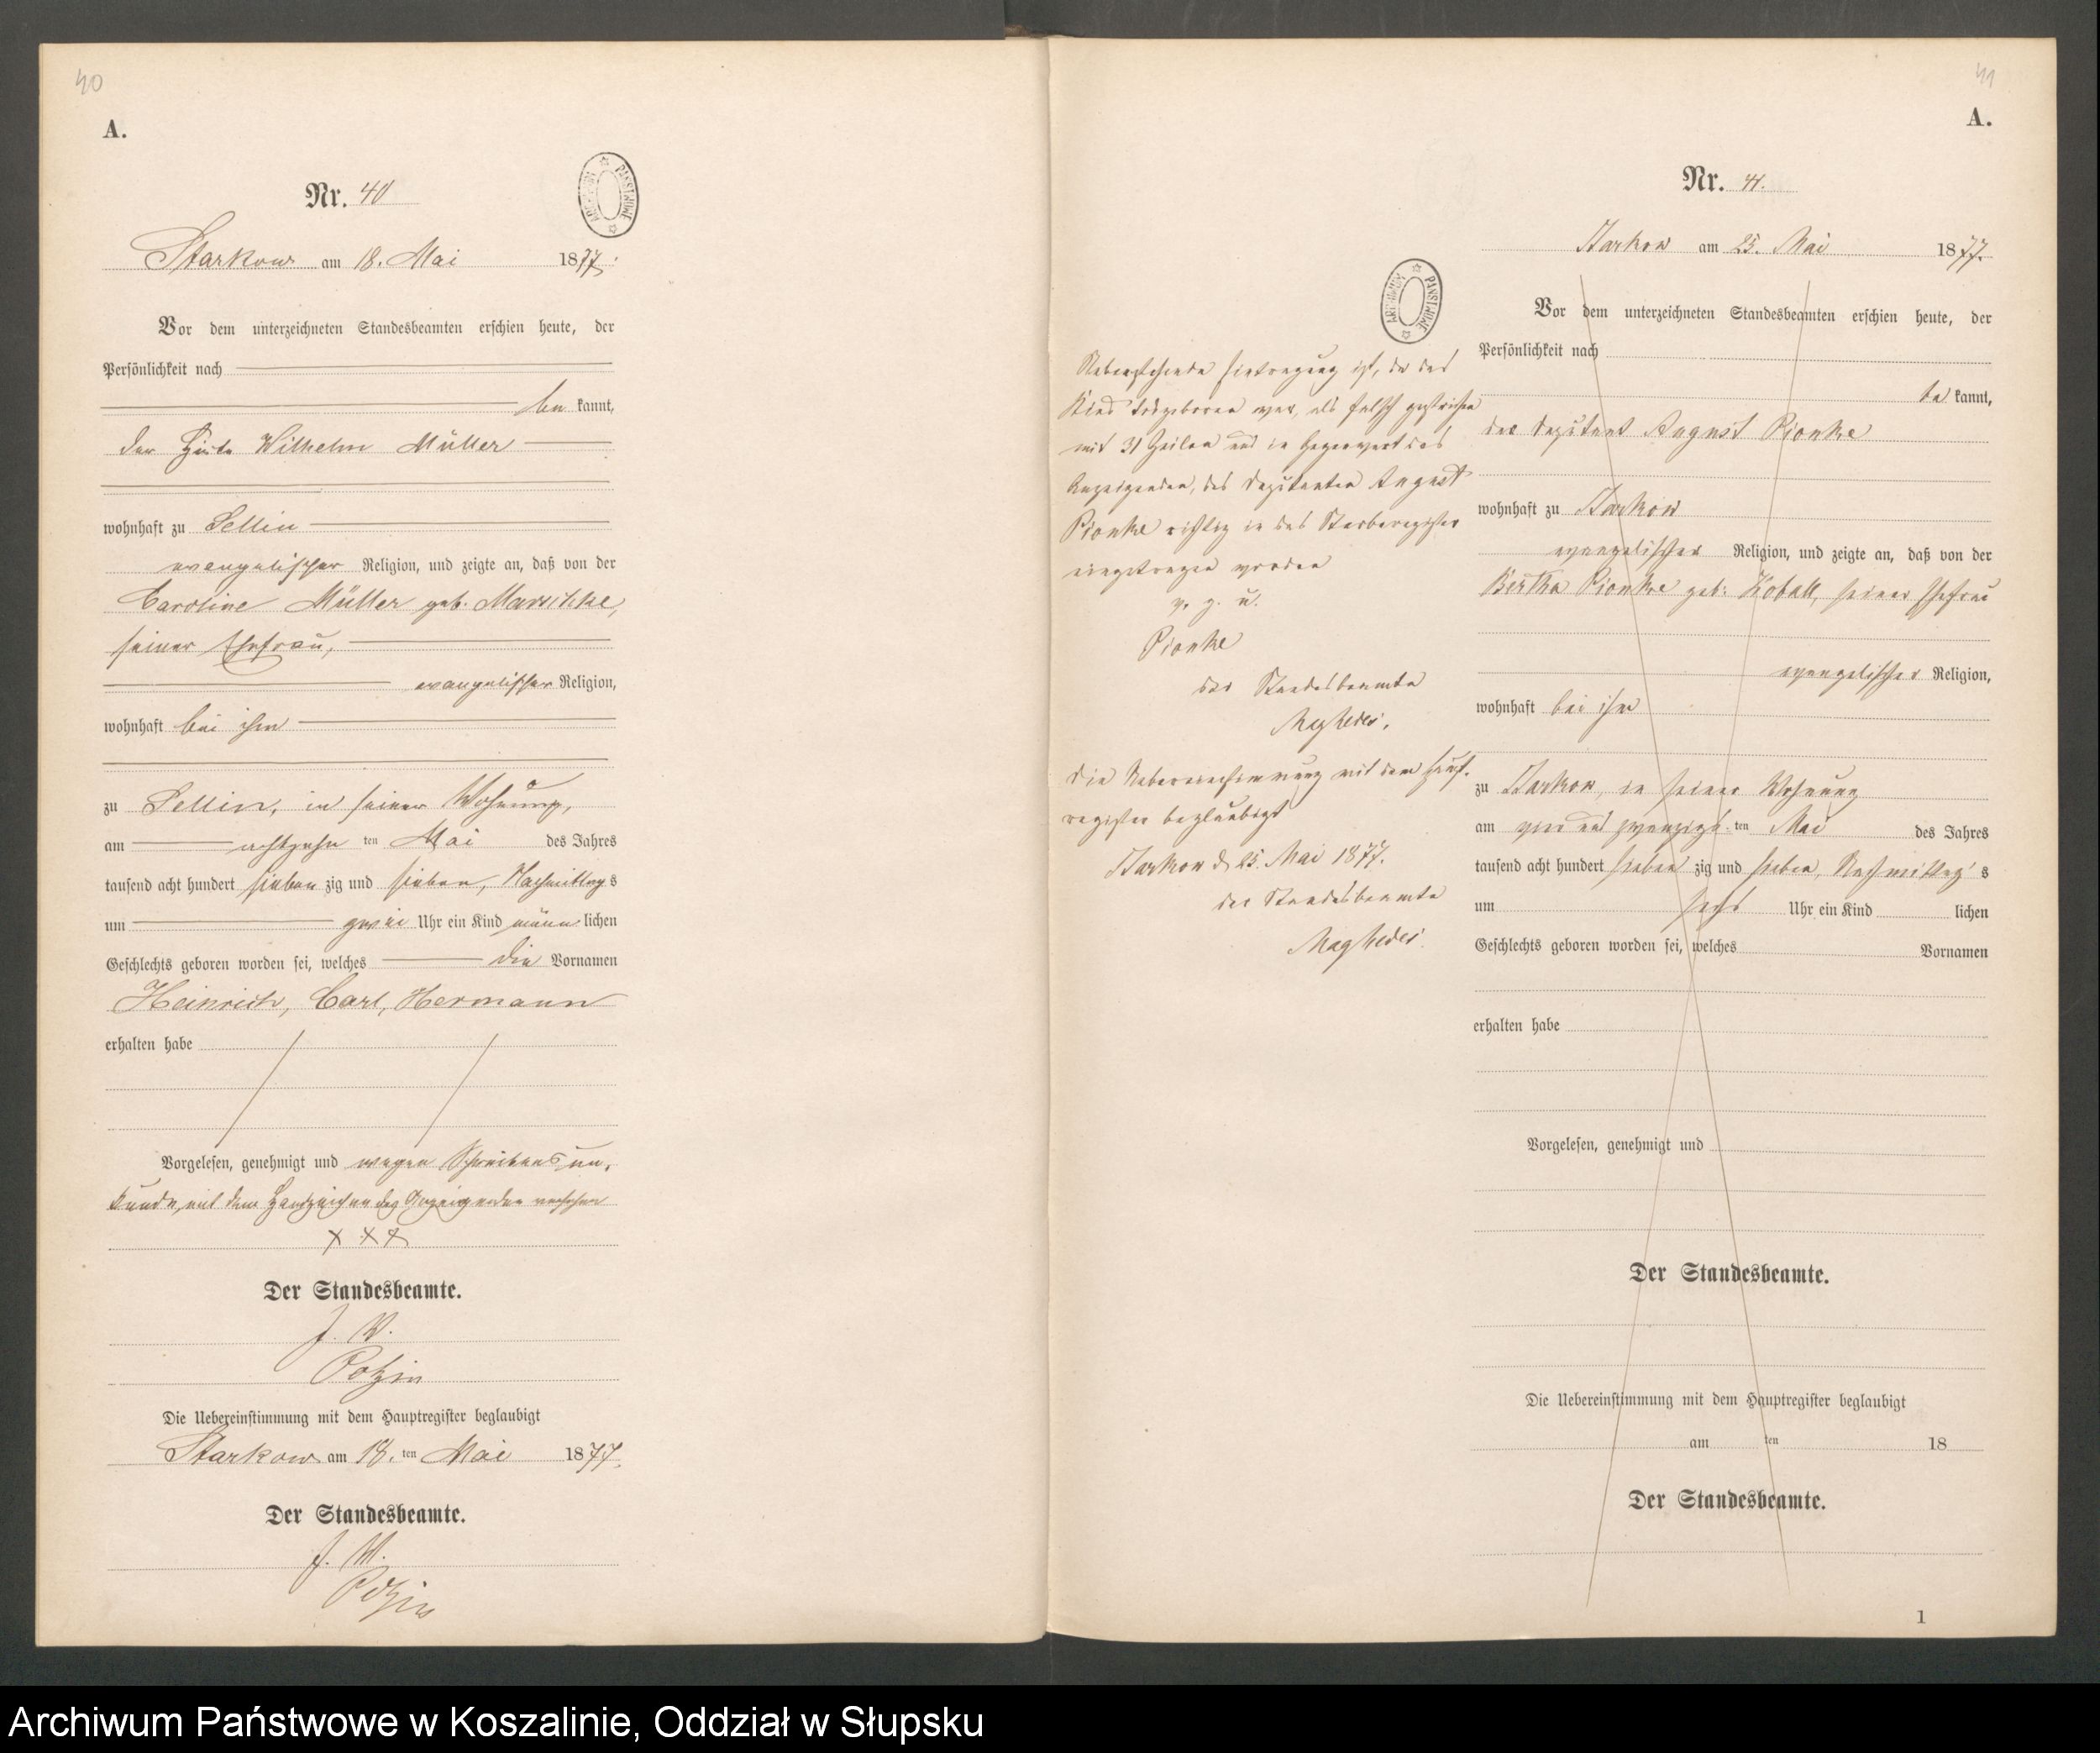 40
A.
Nr. 40
ARCHIWUM PAŃSTWOWE
Starkow am 18. Mai 1877.
Vor dem unterzeichneten Standesbeamten erschien heute, der
Persönlichkeit nach
be kannt,
der Hirte Wilhelm Müller
wohnhaft zu Sellin
evangelischer Religion, und zeigte an, daß von der
Caroline Müller geb. Marschke,
seiner Ehefrau,
evangelischer Religion,
wohnhaft bei ihm
zu Sellin, in seiner Wohnung,
am achtzehn ten Mai des Jahres
tausend acht hundert sieben zig und sieben, Nachmittag s
um zwei Uhr ein Kind männ lichen
Geschlechts geboren worden sei, welches die Vornamen
Heinrich, Carl, Hermann
erhalten habe
Vorgelesen, genehmigt und wegen Schreibens un-
kunde, mit dem Handzeichen des Anzeigenden versehen
X X X
Der Standesbeamte.
J. V.
Potzin
Die Uebereinstimmung mit dem Hauptregister beglaubigt
Starkow am 18. ten Mai 1877.
Der Standesbeamte.
J. V.
Potzin
41
A.
Nr. 41.
ARCHIWUM PAŃSTWOWE
Starkow am 25. Mai 1877.
Vor dem unterzeichneten Standesbeamten erschien heute, der
Persönlichkeit nach
be kannt,
der Deputant August Pionke
wohnhaft zu Starkow
evangelischer Religion, und zeigte an, daß von der
Bertha Pionke geb: Koball, seiner Ehefrau
evangelischer Religion,
wohnhaft bei ihm
zu Starkow, in seiner Wohnung
am vier und zwanzigs ten Mai des Jahres
tausend acht hundert sieben zig und sieben, Nachmittag s
um sechs Uhr ein Kind lichen
Geschlechts geboren worden sei, welches Vornamen
erhalten habe
Vorgelesen, genehmigt und
Der Standesbeamte.
Die Uebereinstimmung mit dem Hauptregister beglaubigt
am ten 18
Der Standesbeamte.
1
Nebenstehende Eintragung ist, da das
Kind todtgeboren war, als falsch gestrichen
mit 31 Zeilen und in Gegenwart des
Anzeigenden, des Deputanten August
Pionke richtig in das Sterberegister
eingetragen worden
v. g. u.
Pionke
der Standesbeamte
Die Uebereinstimmung mit dem Haupt-
register beglaubigt
Starkow d. 25. Mai 1877.
der Standesbeamte
Archiwum Państwowe w Koszalinie, Oddział w Słupsku